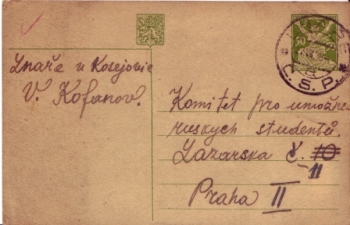 Znaře u Kosejovic
V. Kofanov.
Komitet pro umožne
ruskych studentů.
Lazarska č. 10
11
Praha II
50
Č.S.P.